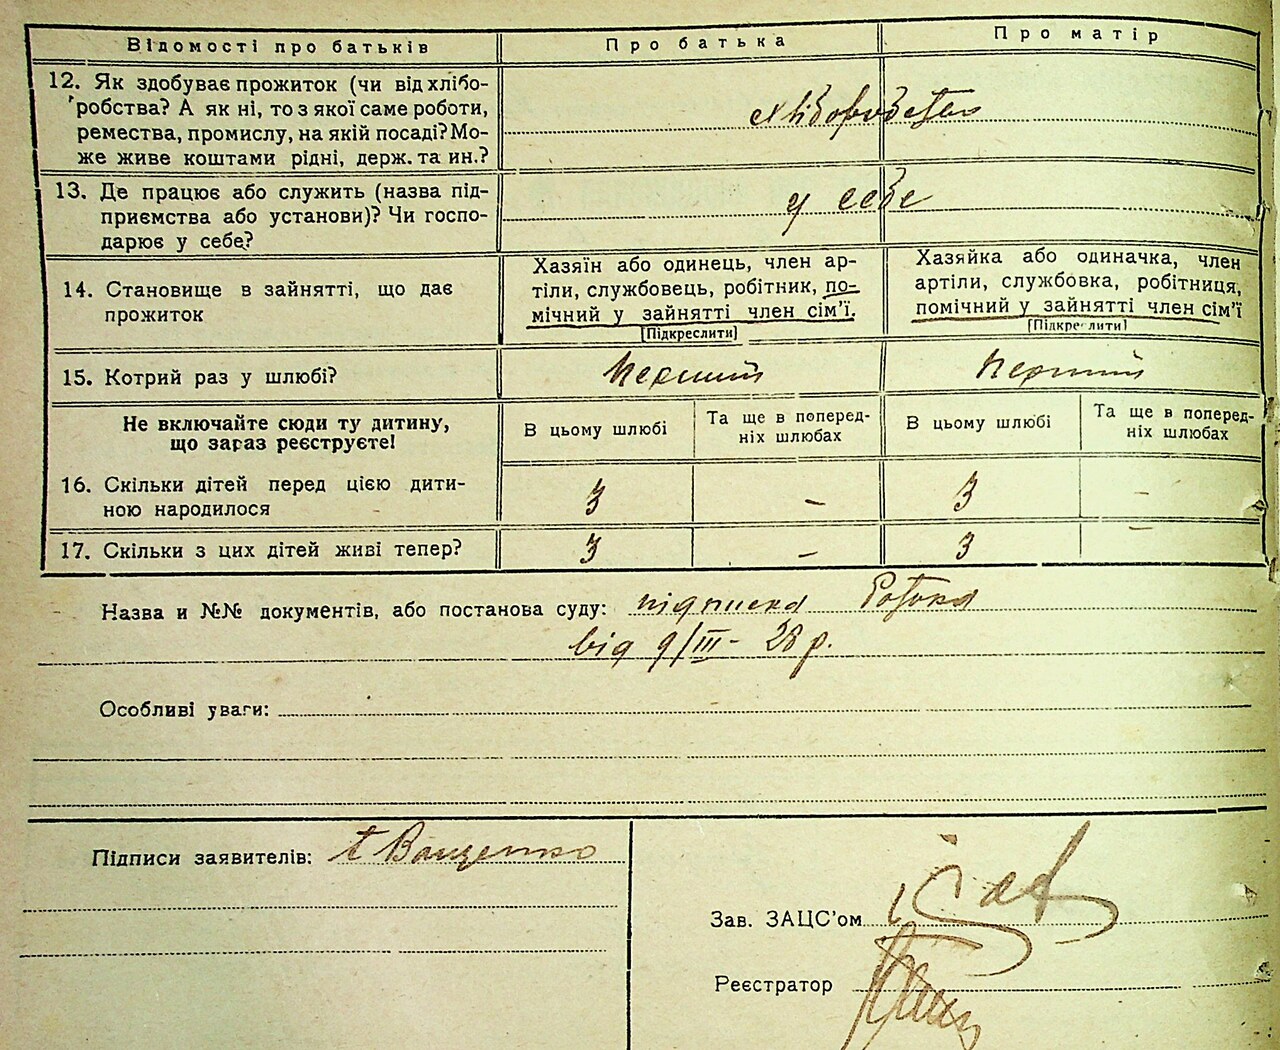 Відомості про батьків
Про батька
Про матір
12. Як здобуває прожиток (чи від хлібо-
робства? А як ні, то з якої саме роботи,
ремества, промислу, на якій посаді? Мо-
же живе коштами рідні, держ. та ин.?
хліборобство
13. Де працює або служить (назва під-
приємства або установи)? Чи госпо-
дарює у себе?
у себе
14. Становище в зайнятті, що дає
прожиток
Хазяїн або одинець, член ар-
тіли, службовець, робітник, по-
мічний у зайнятті член сім'ї.
[Підкреслити]
Хазяйка або одиначка, член
артіли, службовка, робітниця,
помічний у зайнятті член сім'ї
[Підкреслити]
15. Котрий раз у шлюбі?
перший
перший
Не включайте сюди ту дитину,
що зараз реєструєте!
В цьому шлюбі
Та ще в поперед-
ніх шлюбах
В цьому шлюбі
Та ще в поперед-
ніх шлюбах
16. Скільки дітей перед цією дити-
ною народилося
3
–
3
–
17. Скільки з цих дітей живі тепер?
3
–
3
–
Назва и №№ документів, або постанова суду: підписка
від 9/III – 28 р.
Особливі уваги:
Підписи заявителів: Ващенко
Зав. ЗАЦС'ом
Реєстратор